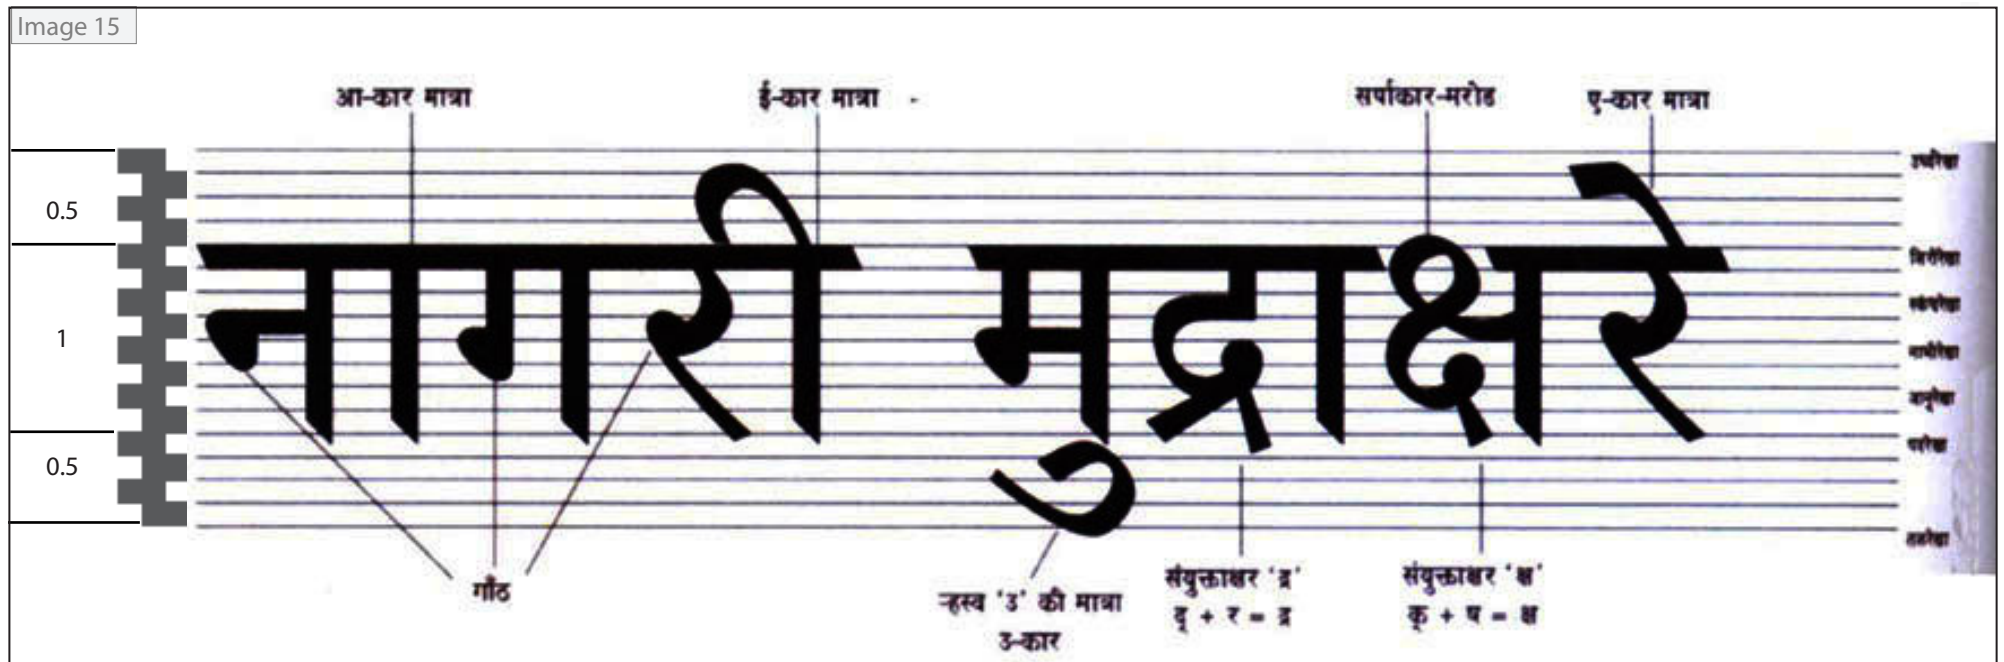 Image 15
आ-कार मात्रा
ई-कार मात्रा
सर्पाकार-मरोड
ए-कार मात्रा
0.5
1
0.5
नागरी मुद्राक्षरे
उर्ध्वरेखा
शिरोरेखा
स्कंधरेखा
नाभीरेखा
जानूरेखा
पदरेखा
तलरेखा
गाँठ
ऱ्हस्व ‘उ’ की मात्रा
उ-कार
संयुक्ताक्षर ‘द्र’
द् + र = द्र
संयुक्ताक्षर ‘क्ष’
क् + ष = क्ष